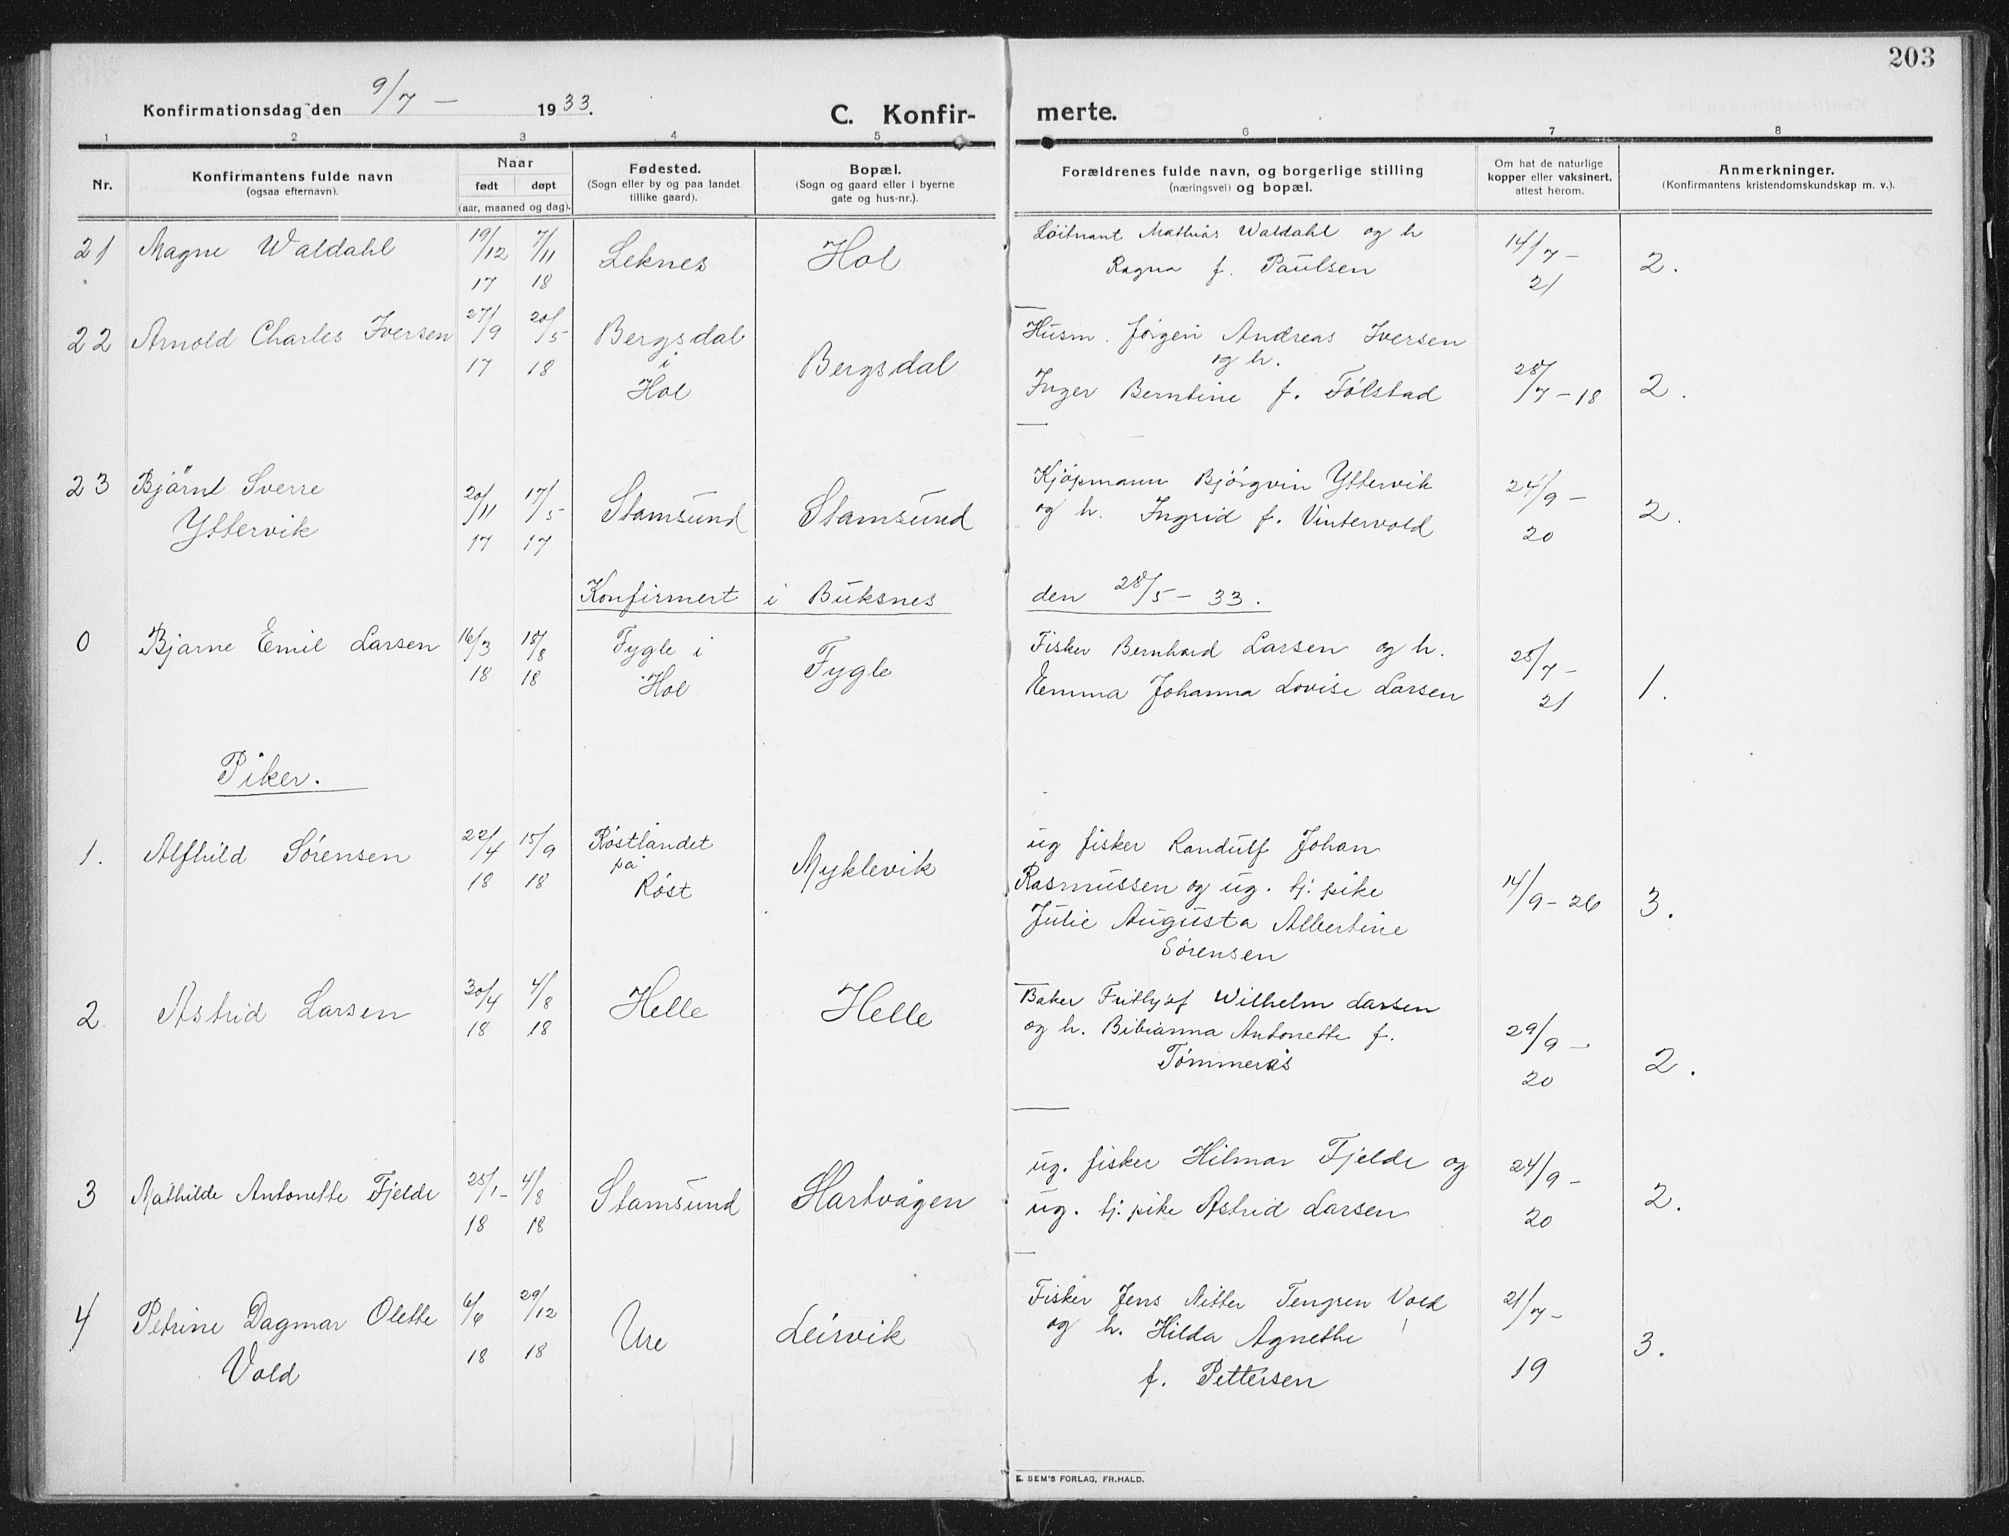 203
Konfirmationsdag den 9/7 - 1933.
C. Konfir-
merte.
1 2 3 4 5 6 7 8
Nr.
Konfirmantens fulde navn
(ogsaa efternavn).
Naar
født døpt
(aar, maaned og dag).
Fødested.
(Sogn eller by og paa landet
tillike gaard).
Bopæl.
(Sogn og gaard eller i byerne
gate og hus-nr.).
Forældrenes fulde navn, og borgerlige stilling
(næringsvei) og bopæl.
Om hat de naturlige
kopper eller vaksinert,
attest herom.
Anmerkninger.
(Konfirmantens kristendomskundskap m. v.).
21 Magne Waldahl 19/12 17 7/11 18 Leknes Hol
Løitnant Mathias Waldahl og h
Ragna f. Paulsen
14/7 - 21 2.
22 Arnold Charles Iversen 27/9 17 20/5 18
Bergsdal
i
Hol
Bergsdal
Husm. Jörgen Andreas Iversen
og h.
Inger Berntine f. Fölstad
28/7 - 18 2.
23 Bjärnt Sverre
Yttervik
20/11 17 17/5 17 Stamsund Stamsund
Kjöpmann Björgvin Yttervik
og h. Ingrid f. Vintervold
24/9 - 20 2.
Konfirmert i Buksnes den 28/5 - 33.
0 Bjarne Emil Larsen 16/3 18 18/8 18
Fygle i
Hol
Fygle
Fisker Bernhard Larsen og h.
Emma Johanna Lovise Larsen
28/7 - 21 1.
Piker.
1. Alfhild Sörensen 22/4 18 15/9 18
Röstlandet
på
Röst
Myklevik
ug fisker Randulf Johan
Rasmussen og ug. tj. pike
Julie Augusta Albertine
Sörensen
14/9 - 26 3.
2 Astrid Larsen 30/4 18 4/8 18 Helle Helle
Baker Fritjof Wilhelm Larsen
og h. Bibianna Antonette f.
Tömmerås
29/9 - 20 2.
3 Mathilde Antonette Fjelde 25/1 - 18 4/8 18 Stamsund Hartvågen
ug. fisker Hilmar Fjelde og
ug. tj. pike Astrid Larsen
24/9 - 20 2.
4 Petrine Dagmar Olette
Vold
6/6 18 29/12 18 Ure Leirvik
Fisker Jens Ritter Tengren Vold
og h. Hilda Agnethe
f. Pettersen
21/7 - 19 3.
E. SEM'S FORLAG, FR.HALD.